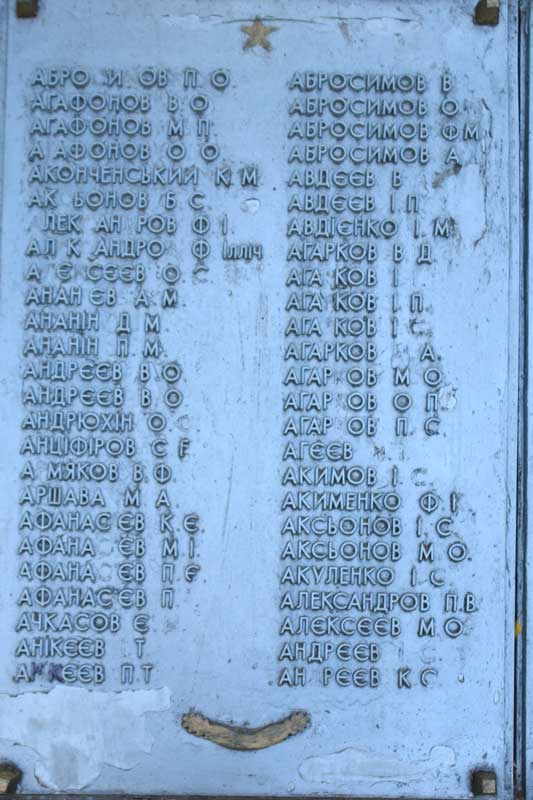 АБРО И ОВ П. О.
АГАФОНОВ В. О.
АГАФОНОВ М. П.
А АФОНОВ О. О.
АКОНЧЕНСЬКИЙ К. М.
АК ЬОНОВ Б. С.
ЛЕК АН РОВ Ф. І.
АЛ К АНДРО Ф ІЛЛІЧ
А Є СЄЄВ О. С.
АНАН ЄВ А. М.
АНАНІН Д. М.
АНАНІН П. М.
АНДРЄЄВ В. О.
АНДРЄЄВ В. О.
АНДРЮХІН О. С.
АНЦІФІРОВ С. Г.
А МЯКОВ В. Ф.
АРШАВА М. А.
АФАНАСЄВ К. Є.
АФАНА ЄВ М. І.
АФАНАСЄВ П. Є.
АФАНАСЄВ П.
АЧКАСОВ Є.
АНІКЄЄВ Т.
АНІКЄЄВ П. Т.
АБРОСИМОВ В.
АБРОСИМОВ О.
АБРОСИМОВ Ф. М.
АБРОСИМОВ А.
АВДЄЄВ В.
АВДЄЄВ І. П.
АВДІЄНКО І. М.
АГАРКОВ В. Д.
АГА КОВ І.
АГА КОВ І. П.
АГА КОВ І. С.
АГАРКОВ І. А.
АГАР ОВ М. О.
АГАР ОВ О. П.
АГАР ОВ П. С.
АГЄЄВ
АКИМОВ І. С.
АКИМЕНКО Ф. І.
АКСЬОНОВ І. С.
АКСЬОНОВ М. О.
АКУЛЕНКО І. С.
АЛЕКСАНДРОВ П. В.
АЛЄКСЄЄВ М. О.
АНДРЄЄВ І. С.
АН РЄЄВ К. С.